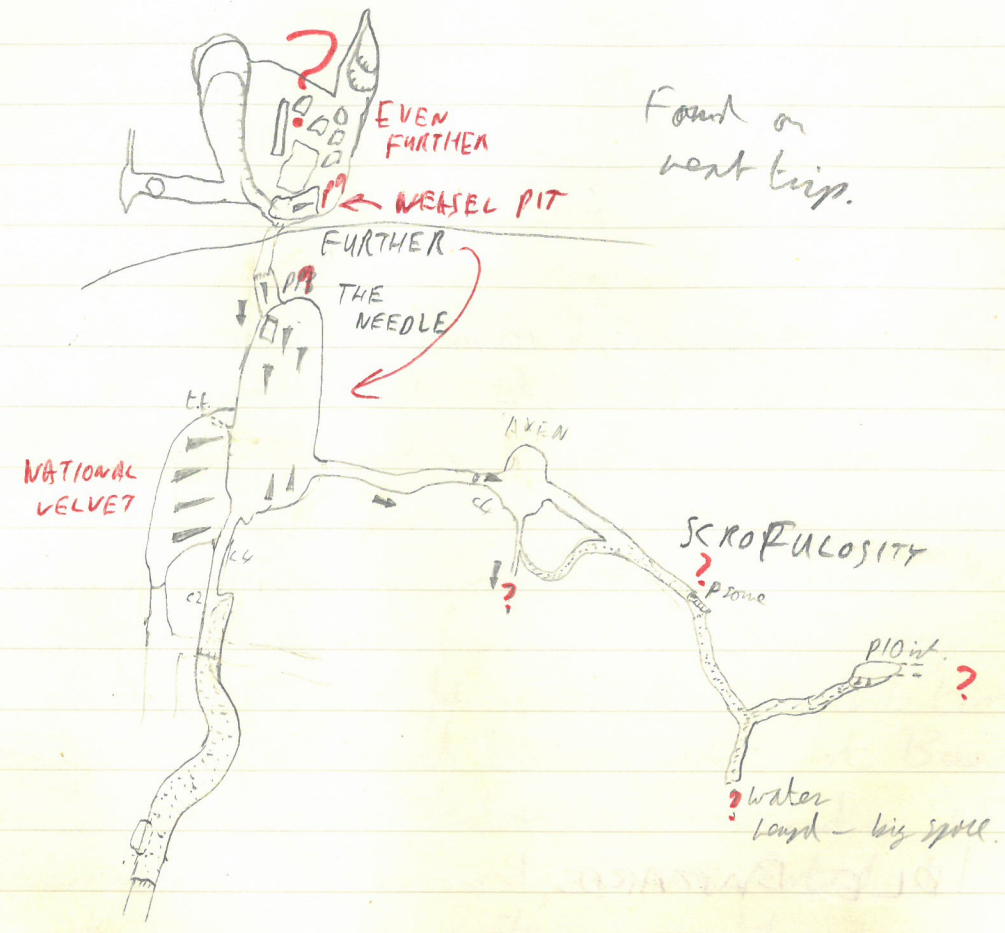 ?
EVEN
FURTHER
Found on
next trip.
P9
WEASEL PIT
FURTHER
THE
NEEDLE
t.t.
AVEN
NATIONAL
VELVET
C4
SCROFULOSITY
?
?
P some
C2
P10ist.
?
?
water
heard - big space.